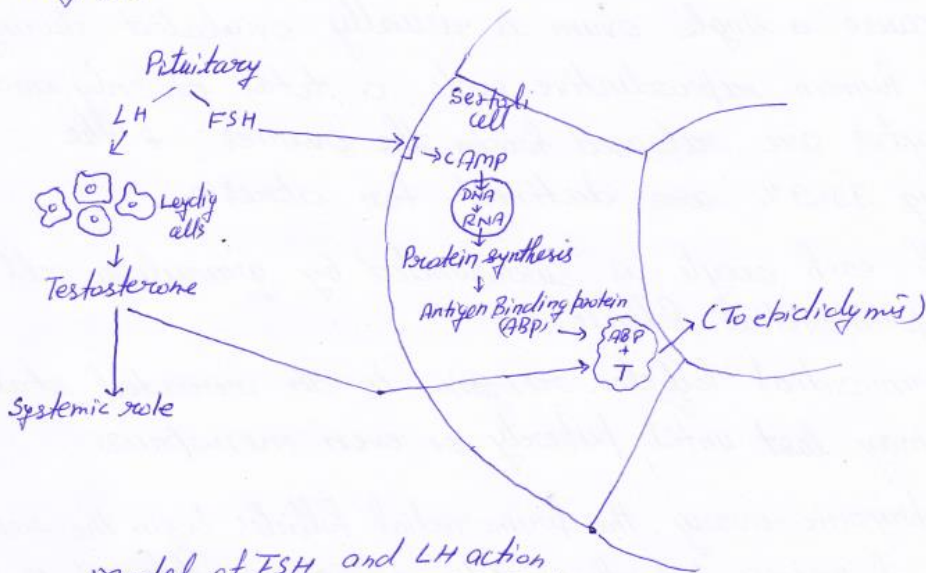 Pituitary
LH FSH
Leydig
cells
Testosterone
Systemic role
Sertoli
cell
cAMP
DNA
RNA
Protein synthesis
Antigen Binding protein
(ABP)
ABP
+
T
(To epididymis)
model of FSH and LH action